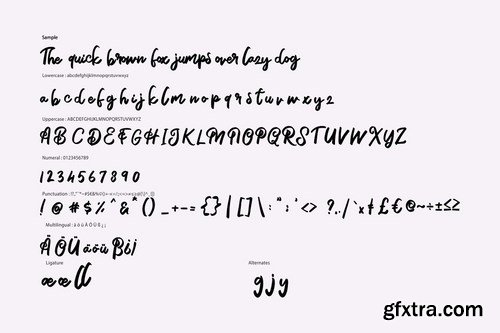 Sample
The quick brown fox jumps over lazy dog
Lowercase : abcdefghijklmnopqrstuvwxyz
a b c d e f g h i j k l m n o p q r s t u v w x y z
Uppercase : ABCDEFGHIJKLMNOPQRSTUVWXYZ
A B C D E F G H I J K L M N O P Q R S T U V W X Y Z
Numeral : 0123456789
1 2 3 4 5 6 7 8 9 0
Punctuation :
! @ # $ % ^ & * ( ) _ + - = { } | [ ] \ : " ; ' < > ? , . / ` × ₺ £ € © ~ ÷ ± ≤ ≥
Multilingual : ä ö ü Ä Ö Ü ß ¡ ¿
Ä Ö Ü ä ö ü ß
Ligature Alternates
æ œ
g j y
gfxtra.com